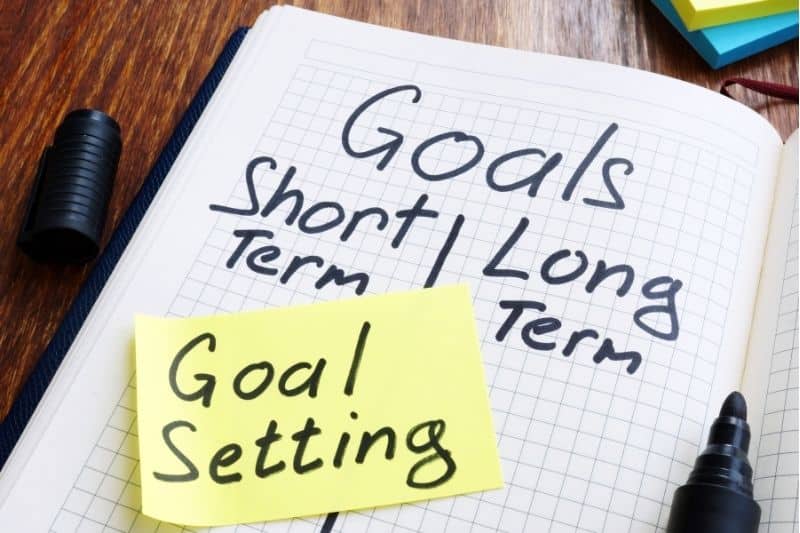 Goals
Short
Term
Long
Term
Goal
Setting